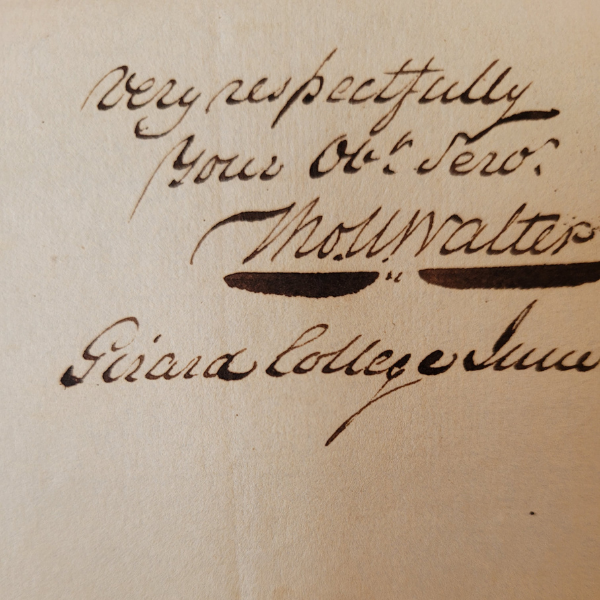 Very respectfully
Your Obt. Servt.
Tho. U. Walter
Girard College June